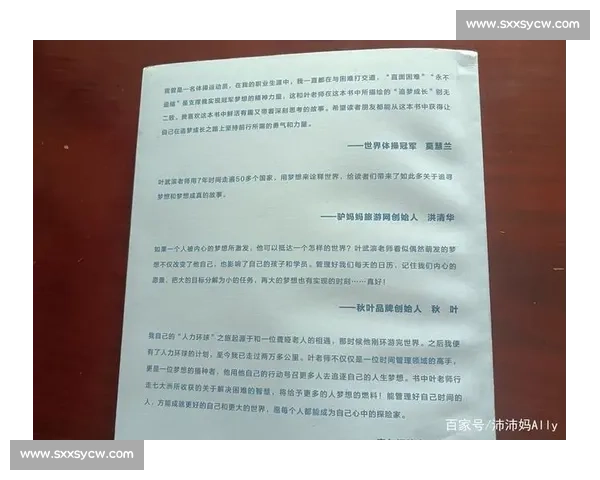 www.sxxsycw.com
我曾是一名体操运动员，在我的职业生涯中，我一直都在与困难打交道，“直面困难”“永不
追缩”是支撑我实现冠军梦想的精神力量，这和叶老师在这本书中所描绘的“追梦成长”别无
二致。我喜欢这本书中鲜活有趣又带着深刻思考的故事。希望读者朋友都能从这本书中获得让
自己在追梦成长之路上坚持前行所需的勇气和力量。
——世界体操冠军 莫慧兰
叶武滨老师用7年时间走遍50多个国家，用梦想来诠释世界，给读者们带来了如此多关于追寻
梦想和梦想成真的故事。
——驴妈妈旅游网创始人 洪清华
如果一个人被内心的梦想所激发，他可以抵达一个怎样的世界？叶武滨老师看似偶然萌发的梦
想不仅改变了他自己，也影响了自己的孩子和学员。管理好我们每天的日历，记住我们内心的
愿景，把大的目标分解为小的任务，再大的梦想也有实现的时刻……真好！
——秋叶品牌创始人 秋 叶
我自己的“人力环球”之旅起源于和一位聋哑老人的相遇，那时候他刚环游完世界。之后我便
有了人力环球的计划，至今我已走过两万多公里。叶老师不仅仅是一位时间管理领域的高手，
更是一位梦想的播种者，他用他自己的行动号召更多人去追逐自己的人生梦想。书中叶老师行
走七大洲所收获的关于解决困难的智慧，将给予更多的人梦想的燃料！能管理好自己时间的
人，方能成就更好的自己和更大的世界，愿每个人都能成为自己心中的探险家。
百家号/沛沛妈Ally
www.sxxsycw.com